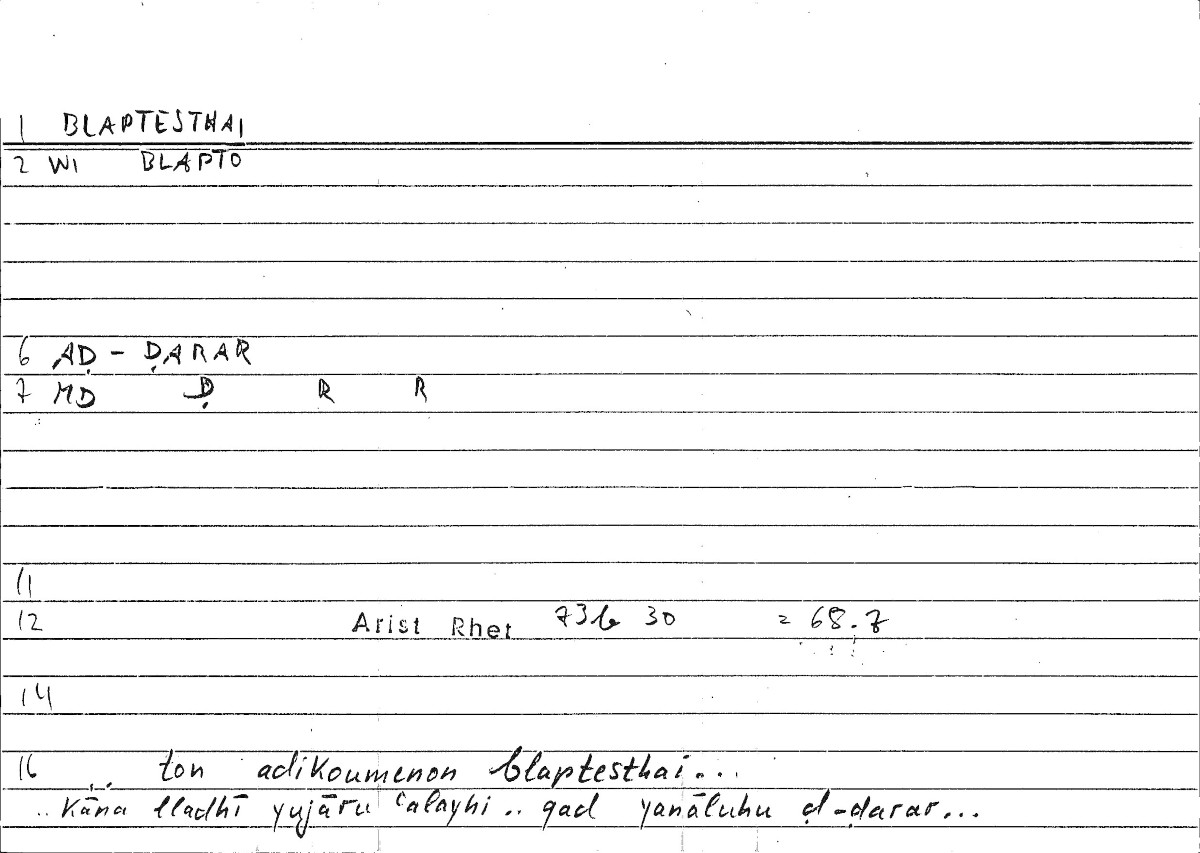 1 BLAPTESTHAI
2 WI BLAPTO
6 AḌ - ḌARAR
7 MD Ḍ R R
11
12 Arist Rhet 73b 30 = 68.7
14
16 ... ton adikoumenon blaptesthai...
.. kāna lladhī yujāru ʿalayhi .. qad yanāluhu ḍ-ḍarar...